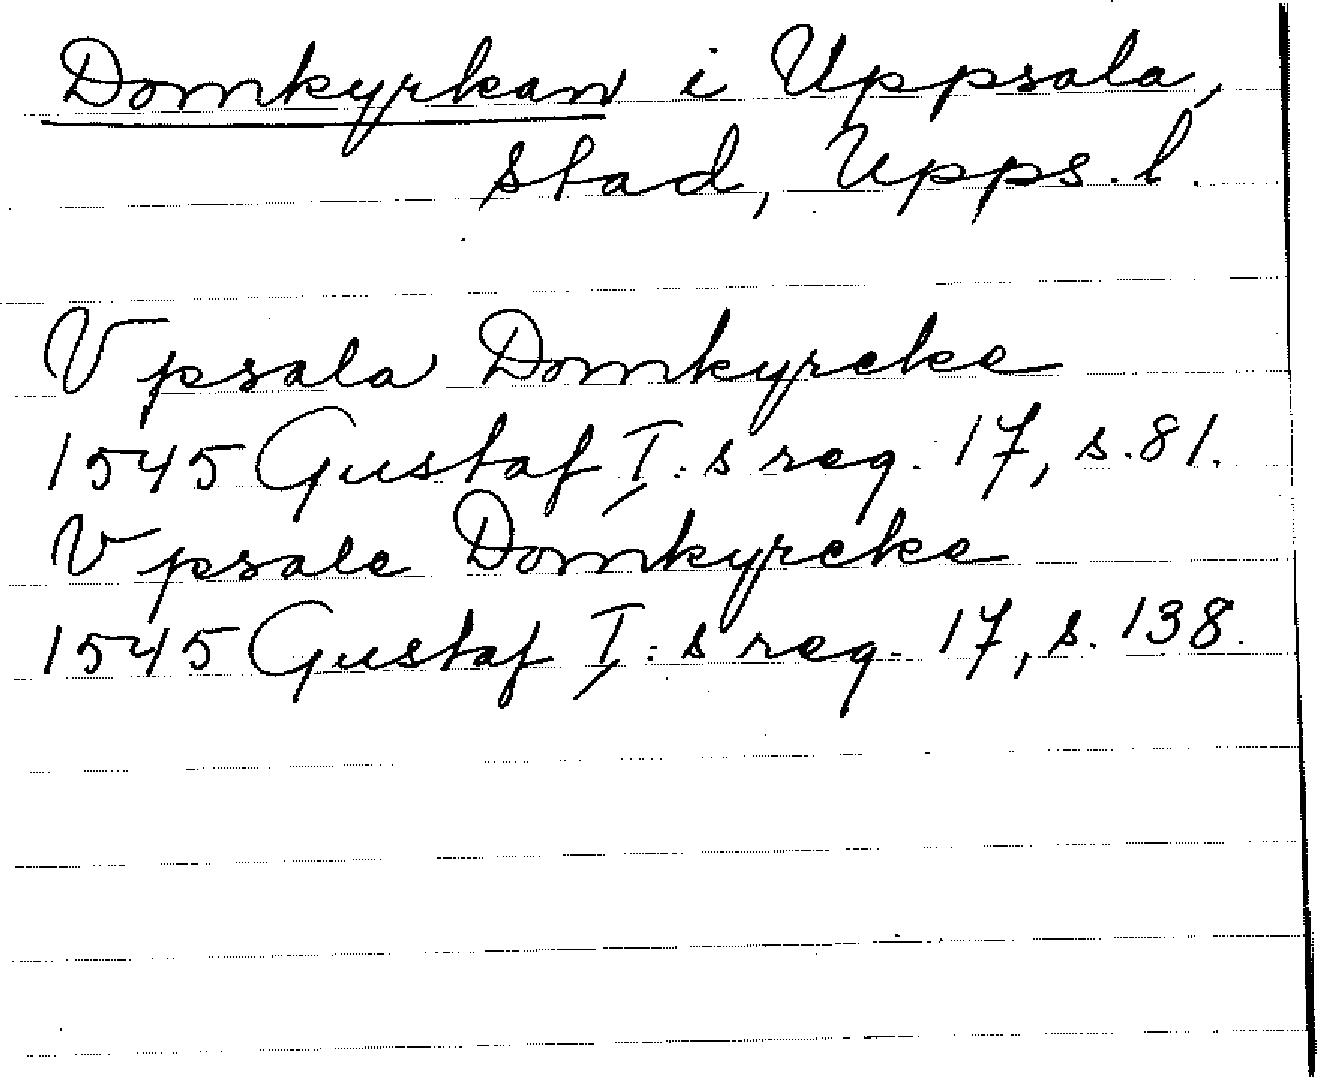 Domkyrkan i Uppsala,
stad, Upps. l.
Vpsala Domkyrcke
1545 Gustaf I:s reg. 17, s. 81.
Vpsale Domkyrcke
1545 Gustaf I:s reg. 17, s. 138.